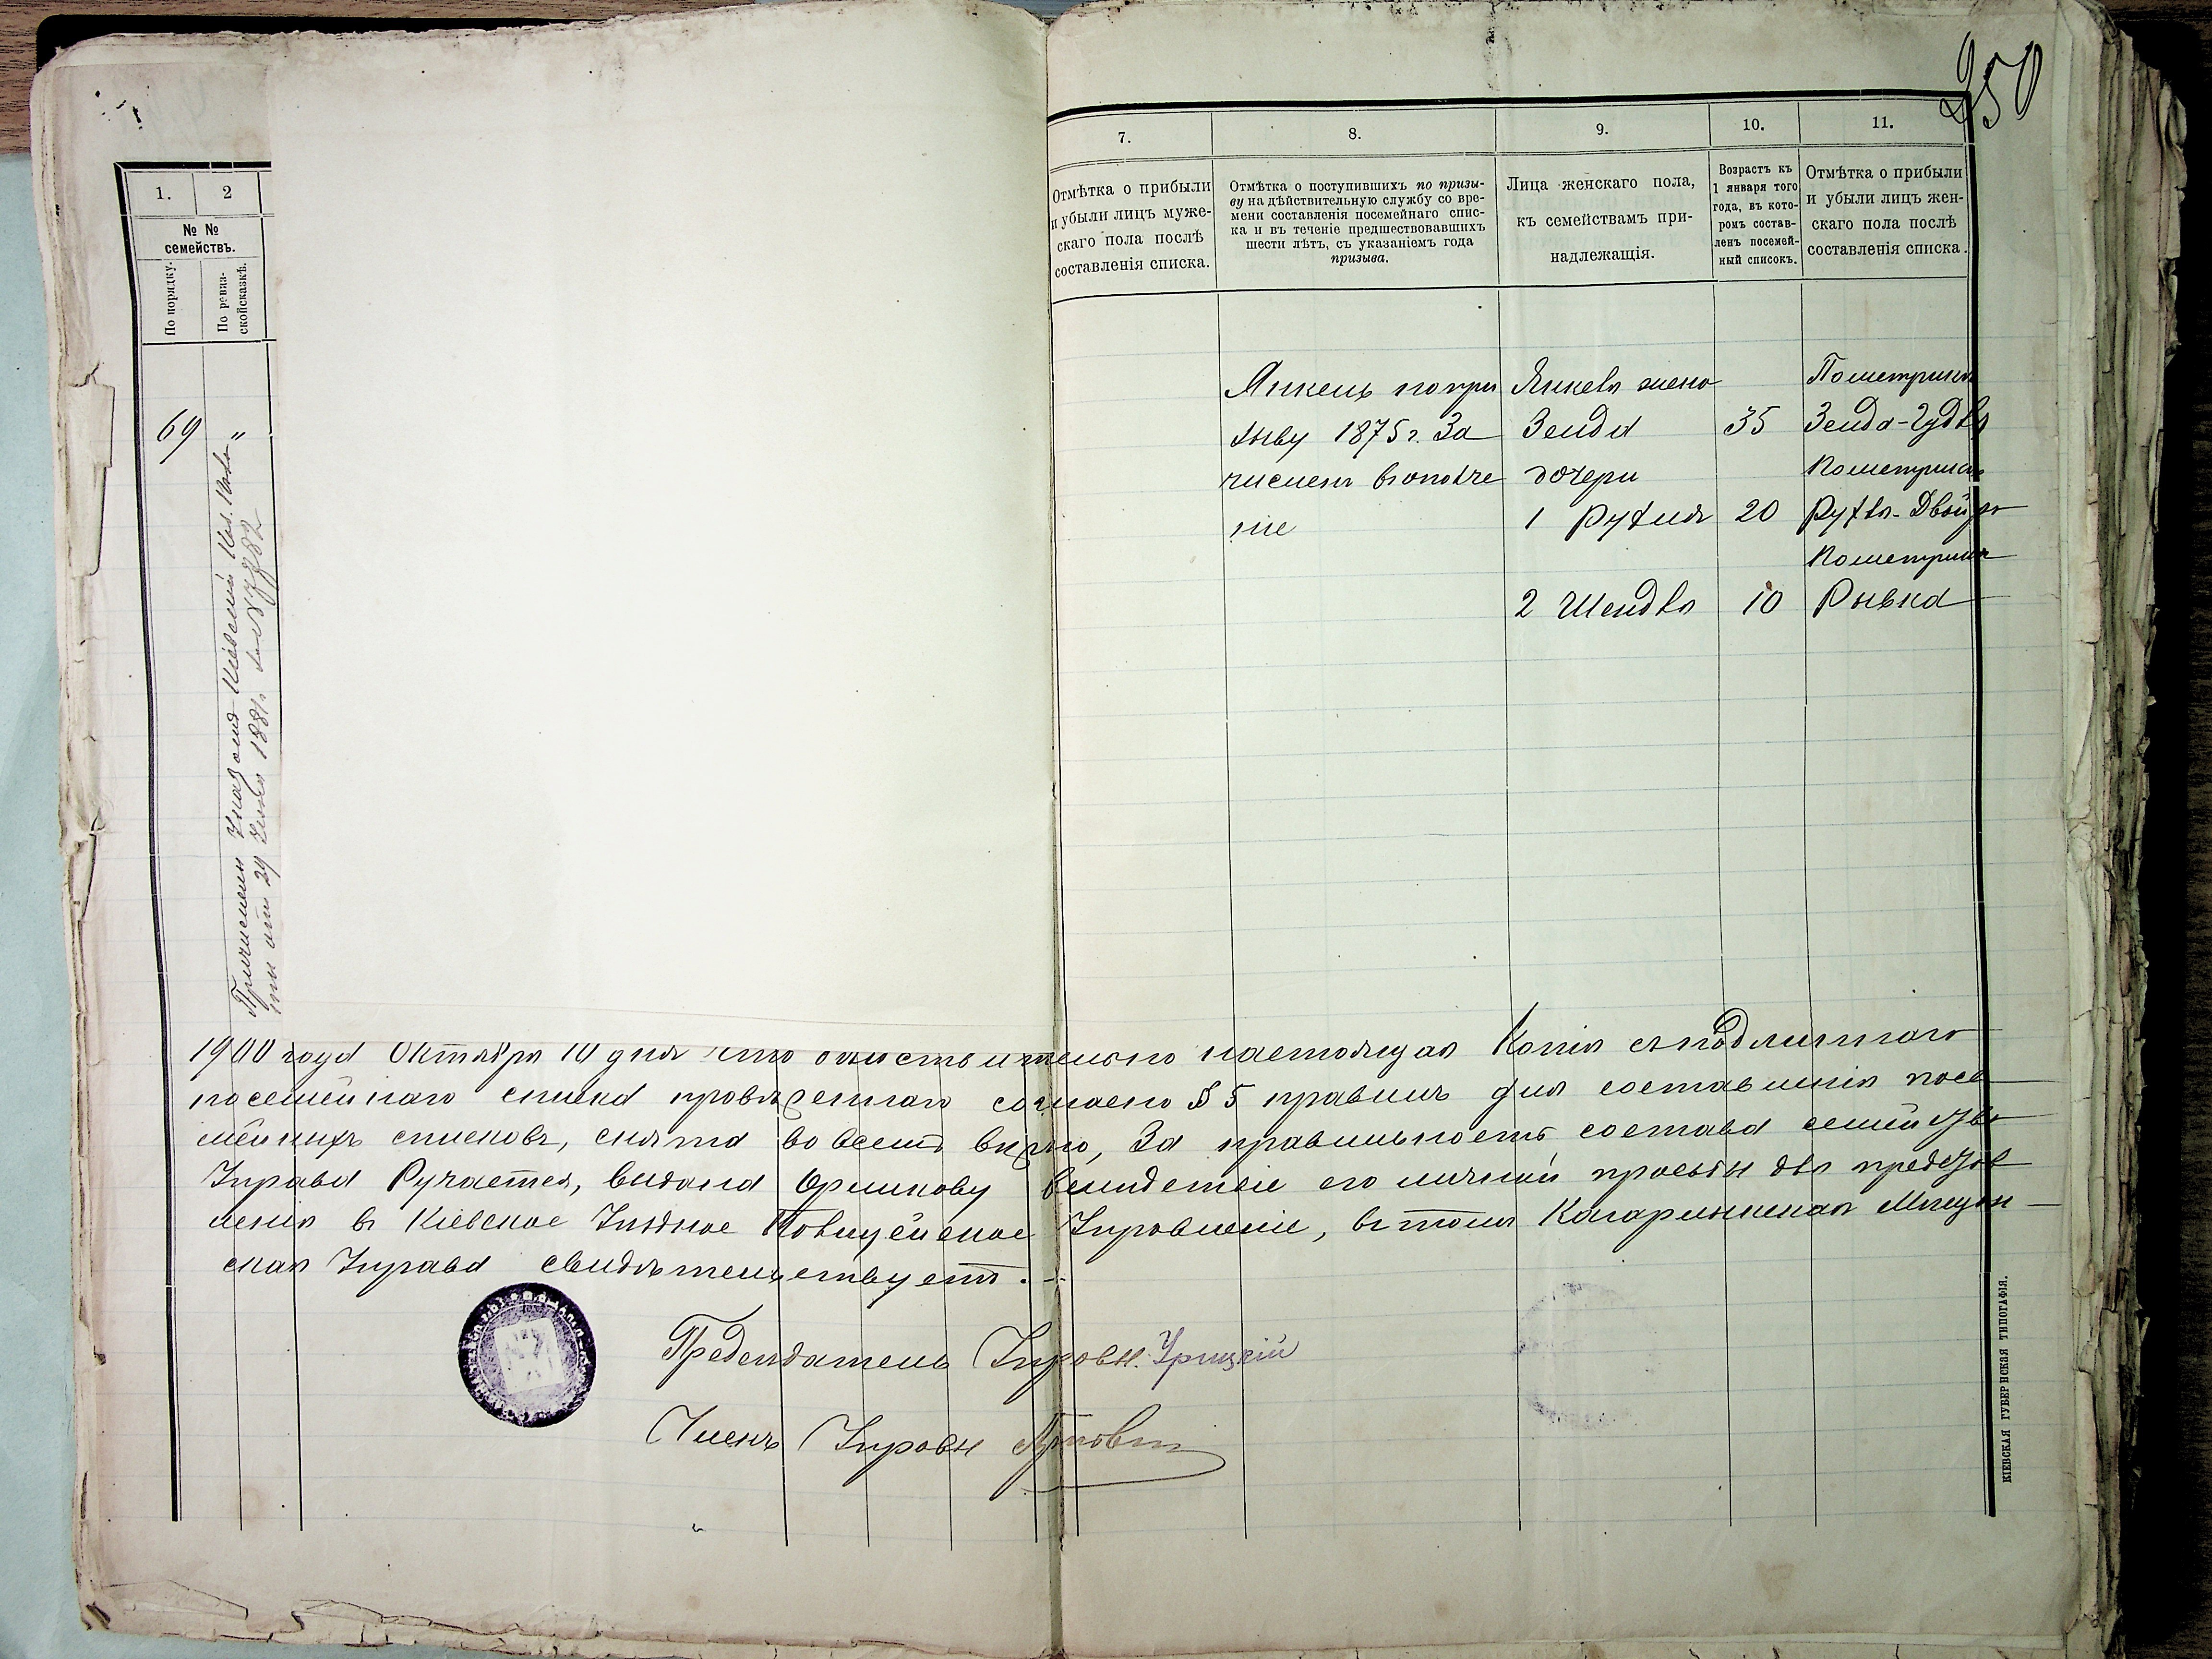 250
1.
2
7.
8.
9.
10.
11.
№ №
семействъ.
По порядку.
По ревиз-
скойсказкѣ.
Отмѣтка о прибыли
и убыли лицъ муже-
скаго пола послѣ
составленія списка.
Отмѣтка о поступившихъ по призы-
ву на дѣйствительную службу со вре-
мени составленія посемейнаго спис-
ка и въ теченіе предшествовавшихъ
шести лѣтъ, съ указаніемъ года
призыва.
Лица женскаго пола,
къ семействамъ при-
надлежащія.
Возрастъ къ
1 января того
года, въ кото-
ромъ состав-
ленъ посемей-
ный списокъ.
Отмѣтка о прибыли
и убыли лицъ жен-
скаго пола послѣ
составленія списка.
69 "
Причисленъ Указомъ Кіевской Каз. Пала-
ты отъ 29 1881г. за №
Янкель попри
зыву 1875 г. За
численъ вополче
ніе
Янкеля жена
Зельда 35
дочери
1 Рухля 20
2 Шендля 10
Пометрикѣ
Зельда-Гудля
Пометрикѣ
Рухля-Двойра
Пометрикѣ
Рывка
1900 года Октября 10 дня что дѣйствительно настоящая Копія съподлиннаго
посемейнаго списка провѣреннаго согласно § 5 правилъ для составленія посе
мейныхъ списковъ, снята во всемъ вѣрно, За правильность состава семейства
Управа Ручается, выдана вслѣдствіе его личной просьбы для представ
ленія въ Кіевское Уѣздное Полицейское Управленіе, въ томъ Кагарлыкская Мѣщан
ская Управа свидѣтельствуетъ.
Предсѣдатель Управы. Урицкій
Членъ Управы
КІЕВСКАЯ ГУБЕРНСКАЯ ТИПОГРАФІЯ.